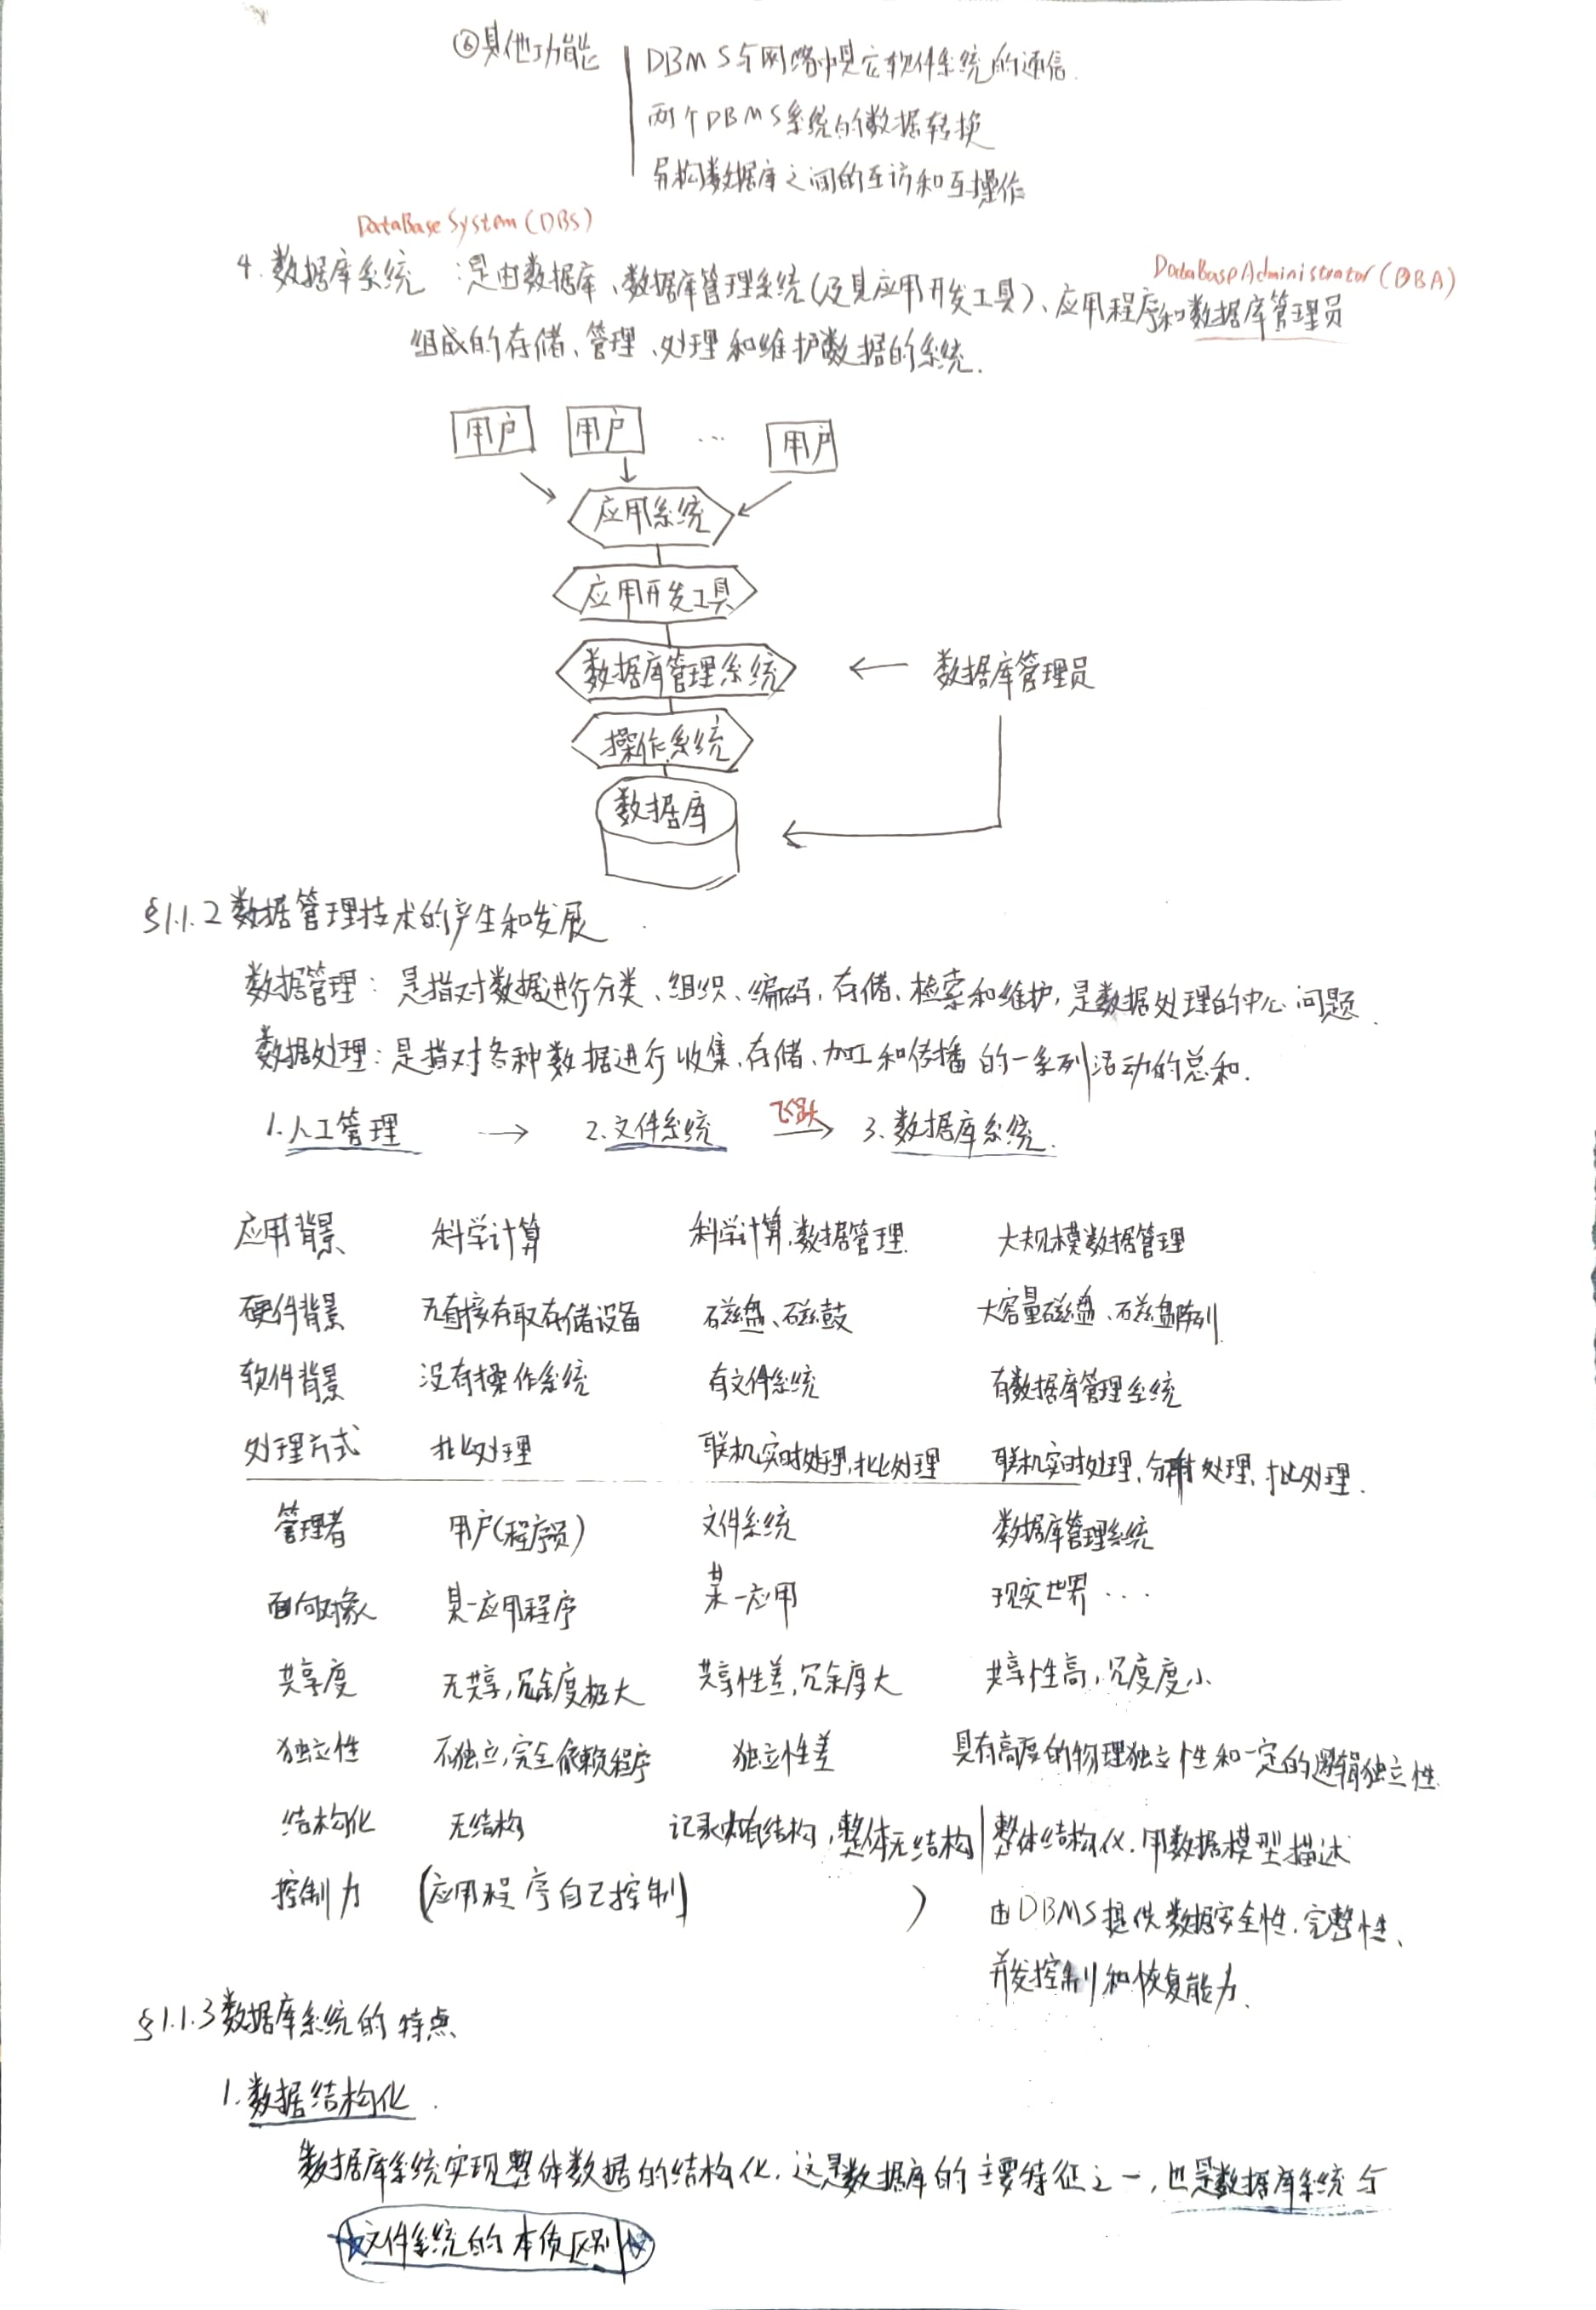 ⑥其他功能
DBMS与网络中其它软件系统的通信.
两个DBMS系统的数据转换
异构数据库之间的互访和互操作
DataBase System(DBS)
DataBase Administrator(DBA)
4.数据库系统：是由数据库、数据库管理系统(及其应用开发工具)、应用程序和数据库管理员
组成的存储、管理、处理和维护数据的系统.
用户 用户 … 用户
应用系统
应用开发工具
数据库管理系统 ← 数据库管理员
操作系统
数据库
§1.1.2数据管理技术的产生和发展
数据管理：是指对数据进行分类、组织、编码、存储、检索和维护,是数据处理的中心问题.
数据处理：是指对各种数据进行收集、存储、加工和传播的一系列活动的总和.
飞跃
1.人工管理 → 2.文件系统 → 3.数据库系统.
应用背景 科学计算 科学计算、数据管理 大规模数据管理
硬件背景 无直接存取存储设备 磁盘、磁鼓 大容量磁盘、磁盘阵列
软件背景 没有操作系统 有文件系统 有数据库管理系统
处理方式 批处理 联机实时处理,批处理 联机实时处理,分布处理,批处理.
管理者 用户(程序员) 文件系统 数据库管理系统
面向对象 某一应用程序 某一应用 现实世界…
共享度 无共享,冗余度极大 共享性差,冗余度大 共享性高,冗度度小
独立性 不独立,完全依赖程序 独立性差 具有高度的物理独立性和一定的逻辑独立性
结构化 无结构 记录内有结构,整体无结构 整体结构化.用数据模型描述
控制力 (应用程序自己控制 ) 由DBMS提供数据安全性.完整性、
并发控制和恢复能力.
§1.1.3数据库系统的特点
1.数据结构化.
数据库系统实现整体数据的结构化.这是数据库的主要特征之一,也是数据库系统与
☆文件系统的本质区别☆